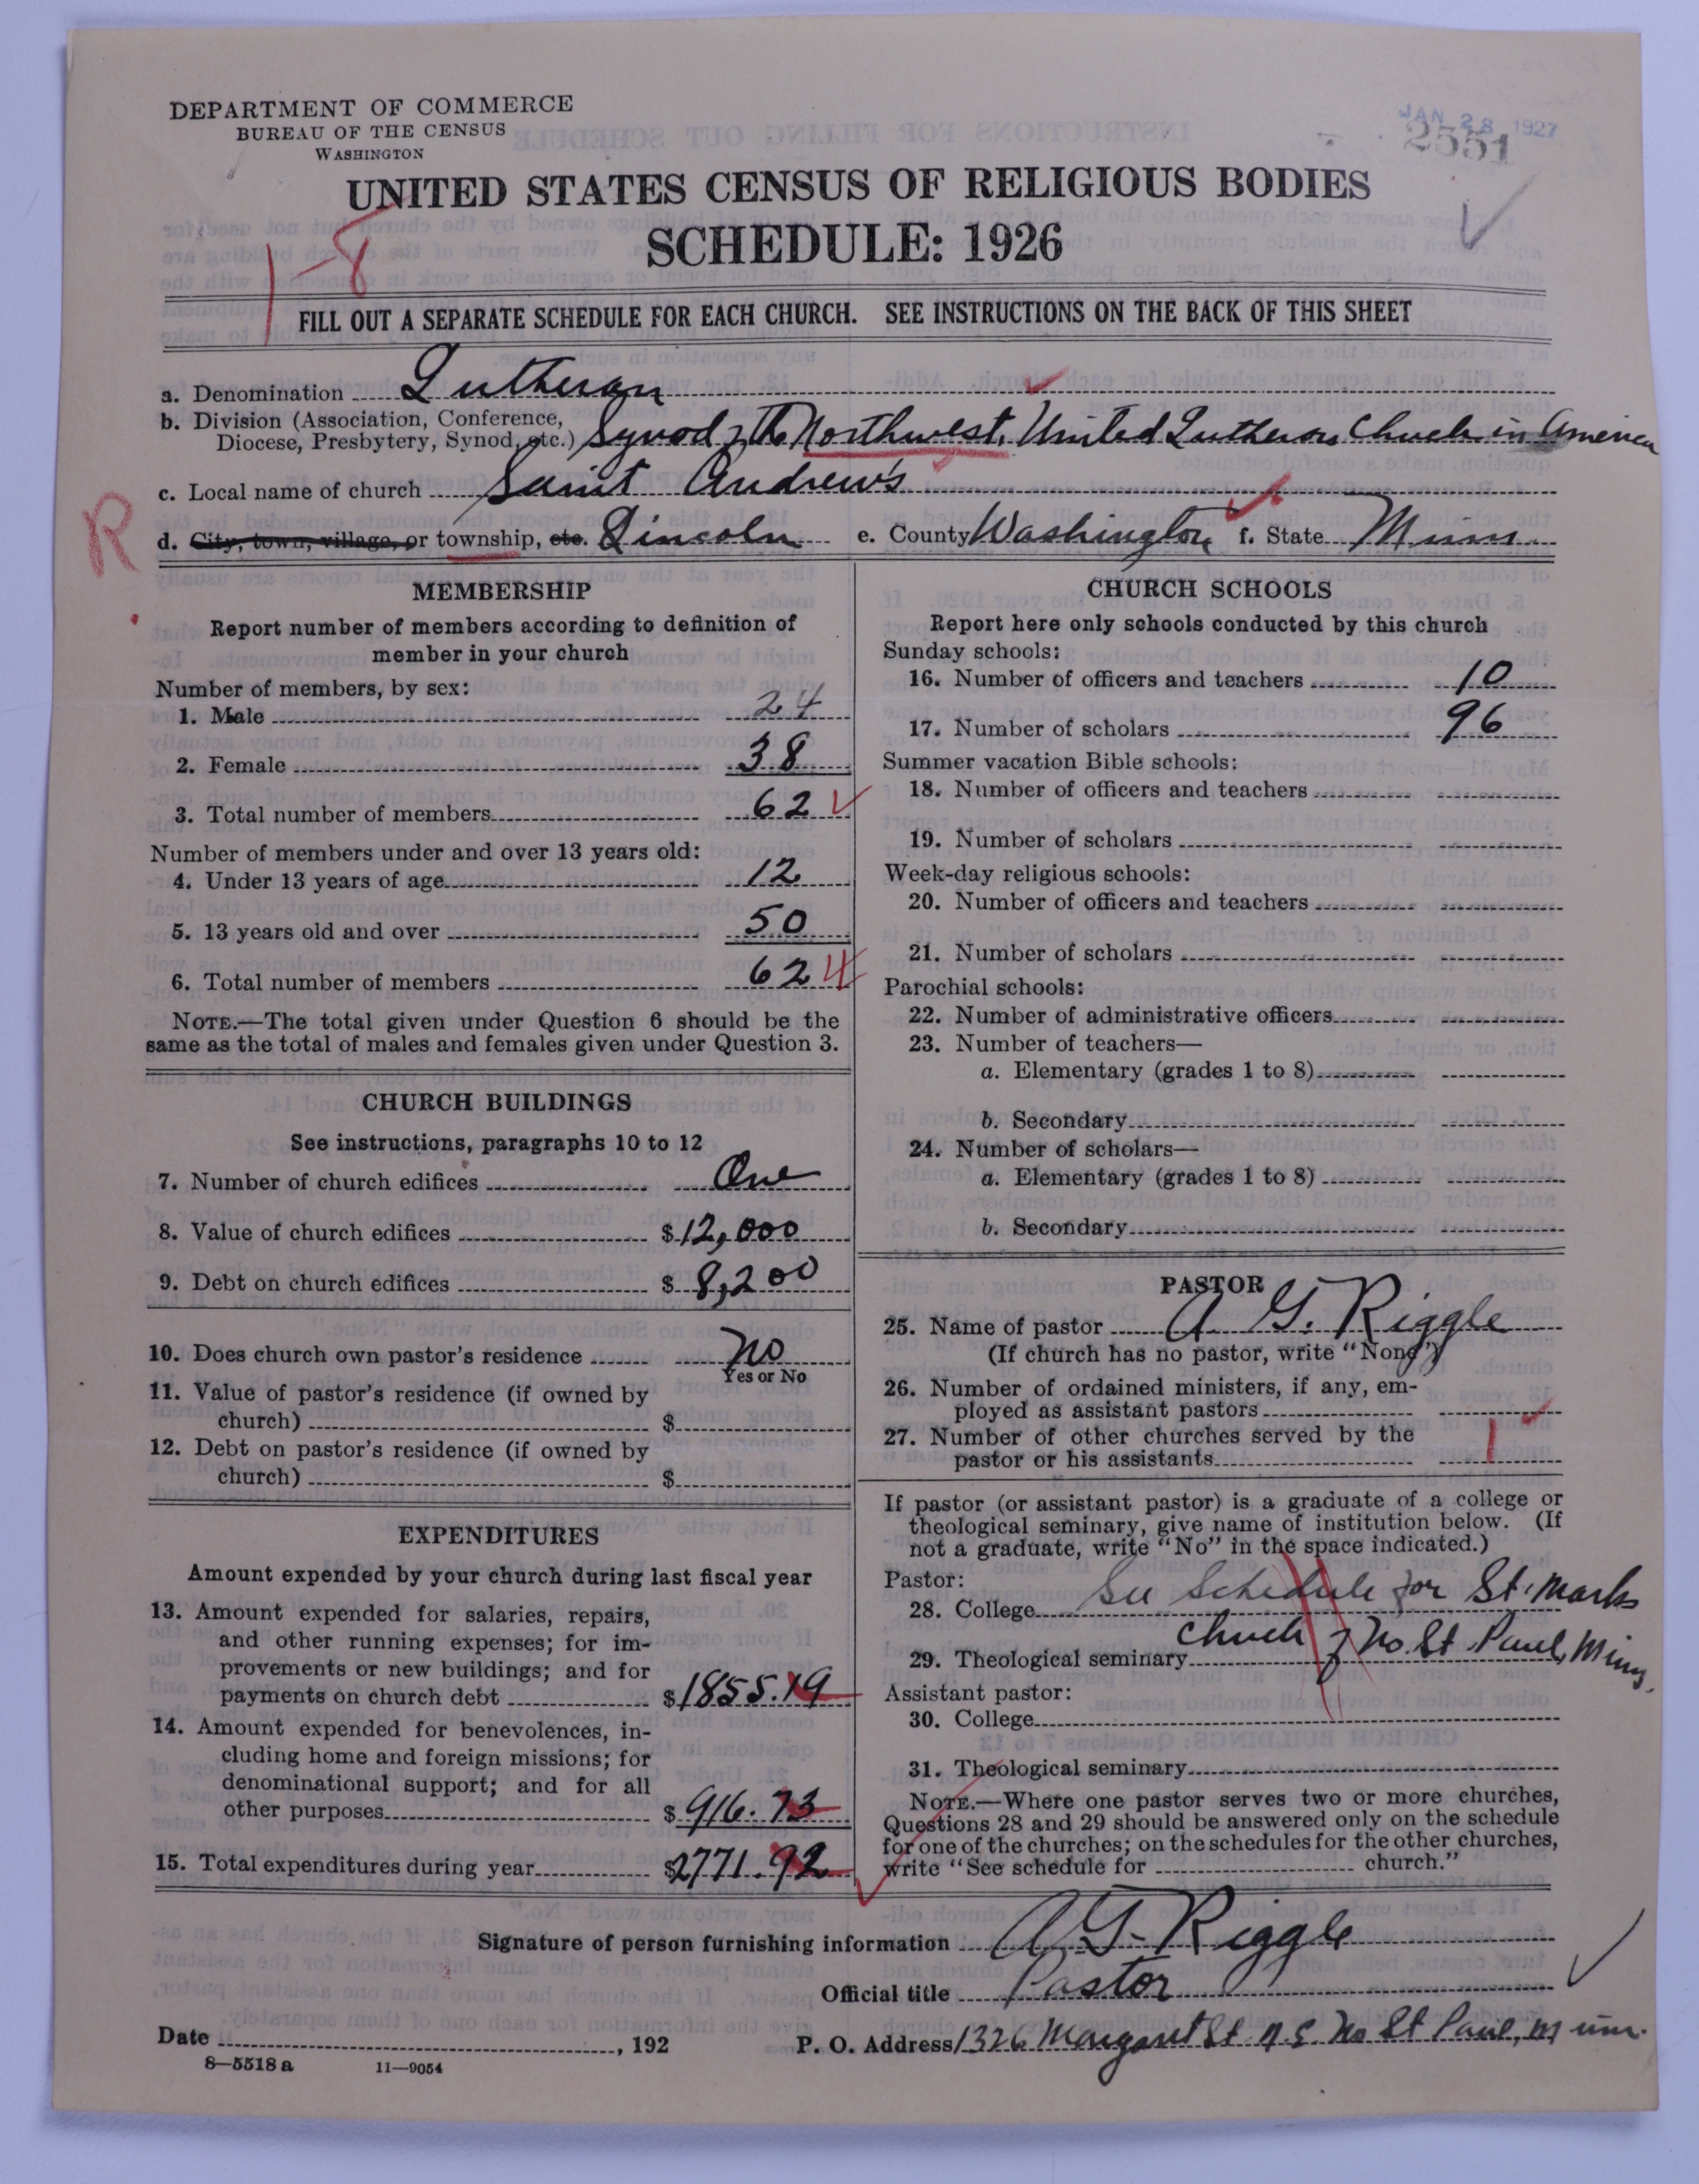 DEPARTMENT OF COMMERCE
BUREAU OF THE CENSUS
WASHINGTON
JAN 28 1927
2551
UNITED STATES CENSUS OF RELIGIOUS BODIES
SCHEDULE: 1926
1-8
FILL OUT A SEPARATE SCHEDULE FOR EACH CHURCH. SEE INSTRUCTIONS ON THE BACK OF THIS SHEET
a. Denomination Lutheran
b. Division (Association, Conference,
Diocese, Presbytery, Synod, etc.) Synod of the Northwest, United Lutheran Church in America
c. Local name of church Saint Andrew's
R
d. City, town, village, or township, etc. Lincoln e. County Washington f. State Minn
MEMBERSHIP
Report number of members according to definition of
member in your church
Number of members, by sex:
1. Male 24
2. Female 38
3. Total number of members 62
Number of members under and over 13 years old:
4. Under 13 years of age 12
5. 13 years old and over 50
6. Total number of members 62
NOTE.—The total given under Question 6 should be the
same as the total of males and females given under Question 3.
CHURCH BUILDINGS
See instructions, paragraphs 10 to 12
7. Number of church edifices One
8. Value of church edifices $12,000
9. Debt on church edifices $8,200
10. Does church own pastor's residence No
Yes or No
11. Value of pastor's residence (if owned by
church) $
12. Debt on pastor's residence (if owned by
church) $
EXPENDITURES
Amount expended by your church during last fiscal year
13. Amount expended for salaries, repairs,
and other running expenses; for im-
provements or new buildings; and for
payments on church debt $1855.19
14. Amount expended for benevolences, in-
cluding home and foreign missions; for
denominational support; and for all
other purposes $916.73
15. Total expenditures during year $2771.92
CHURCH SCHOOLS
Report here only schools conducted by this church
Sunday schools:
16. Number of officers and teachers 10
17. Number of scholars 96
Summer vacation Bible schools:
18. Number of officers and teachers
19. Number of scholars
Week-day religious schools:
20. Number of officers and teachers
21. Number of scholars
Parochial schools:
22. Number of administrative officers
23. Number of teachers—
a. Elementary (grades 1 to 8)
b. Secondary
24. Number of scholars—
a. Elementary (grades 1 to 8)
b. Secondary
PASTOR
25. Name of pastor A. G. Riggle
(If church has no pastor, write "None")
26. Number of ordained ministers, if any, em-
ployed as assistant pastors
27. Number of other churches served by the
pastor or his assistants 1
If pastor (or assistant pastor) is a graduate of a college or
theological seminary, give name of institution below. (If
not a graduate, write "No" in the space indicated.)
Pastor:
28. College See Schedule for St. Marks
29. Theological seminary Church of No. St. Paul, Minn.
Assistant pastor:
30. College
31. Theological seminary
NOTE.—Where one pastor serves two or more churches,
Questions 28 and 29 should be answered only on the schedule
for one of the churches; on the schedules for the other churches,
write "See schedule for church."
Signature of person furnishing information A G. Riggle
Official title Pastor
Date , 192 P. O. Address 1326 Margaret St. N. E. No St Paul, Minn.
8—5518 a 11—9054